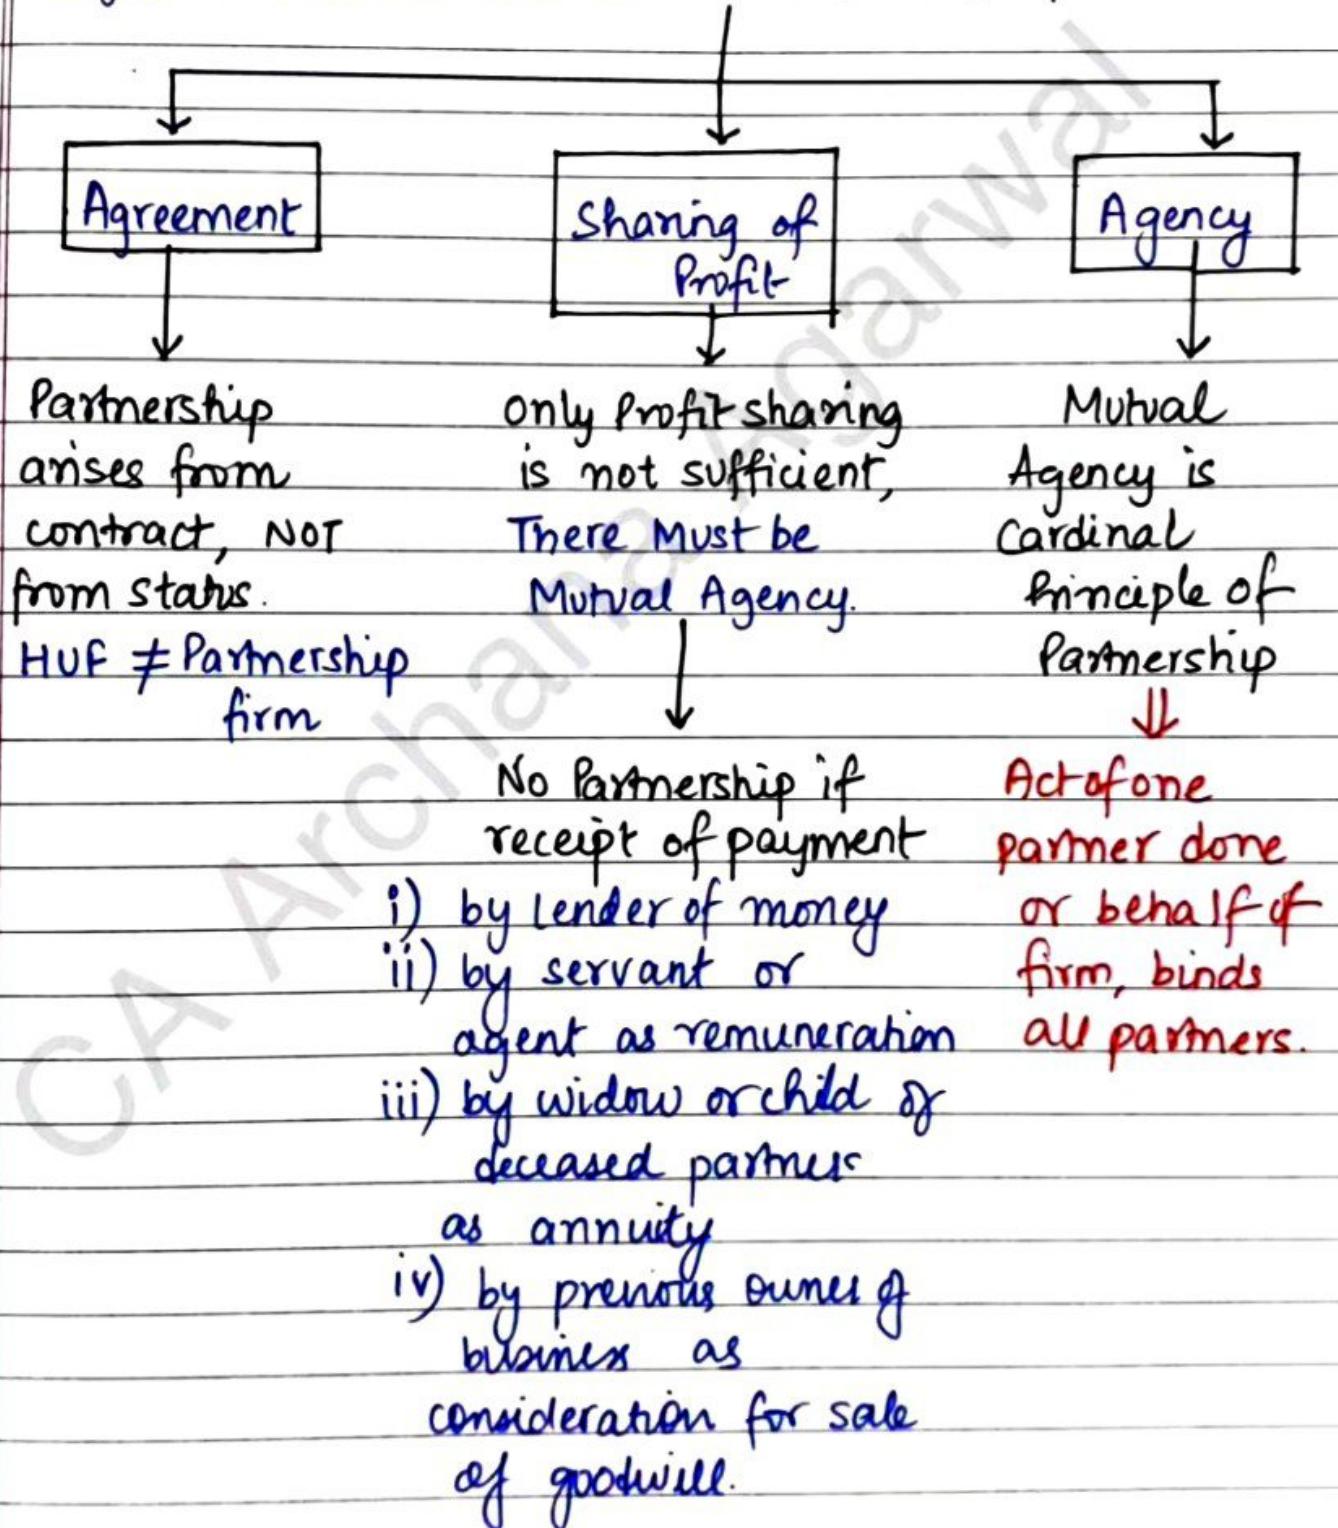 Agreement
Sharing of
Profit
Agency
Partnership
arises from
contract, NOT
from status.
HUF ≠ Partnership
firm
Only Profit sharing
is not sufficient,
There Must be
Mutual Agency.
No Partnership if
receipt of payment
i) by lender of money
ii) by servant or
agent as remuneration
iii) by widow or child of
deceased partner
as annuity
iv) by previous owner of
business as
consideration for sale
of goodwill.
Mutual
Agency is
Cardinal
Principle of
Partnership
⇓
Act of one
partner done
or behalf of
firm, binds
all partners.
CA Archana Agarwal